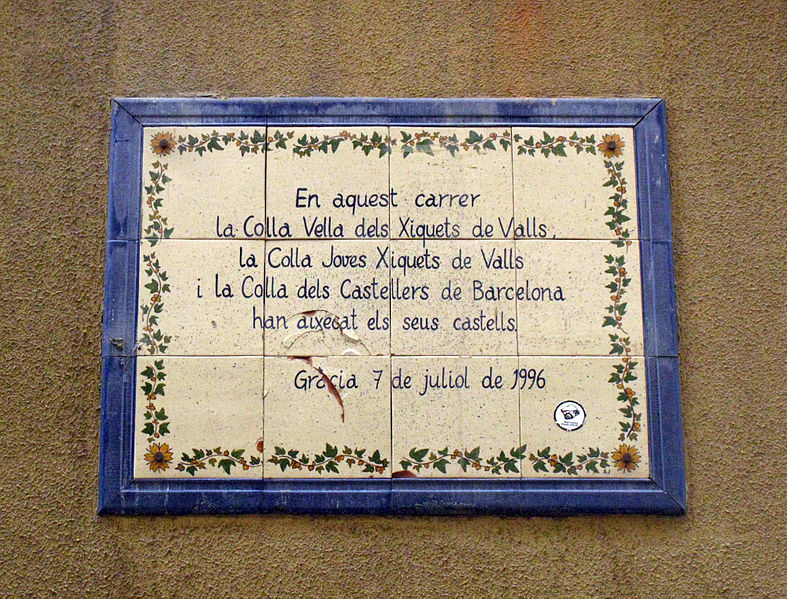 En aquest carrer
la Colla Vella dels Xiquets de Valls,
la Colla Joves Xiquets de Valls
i la Colla dels Castellers de Barcelona
han aixecat els seus castells.
Gràcia 7 de juliol de 1996